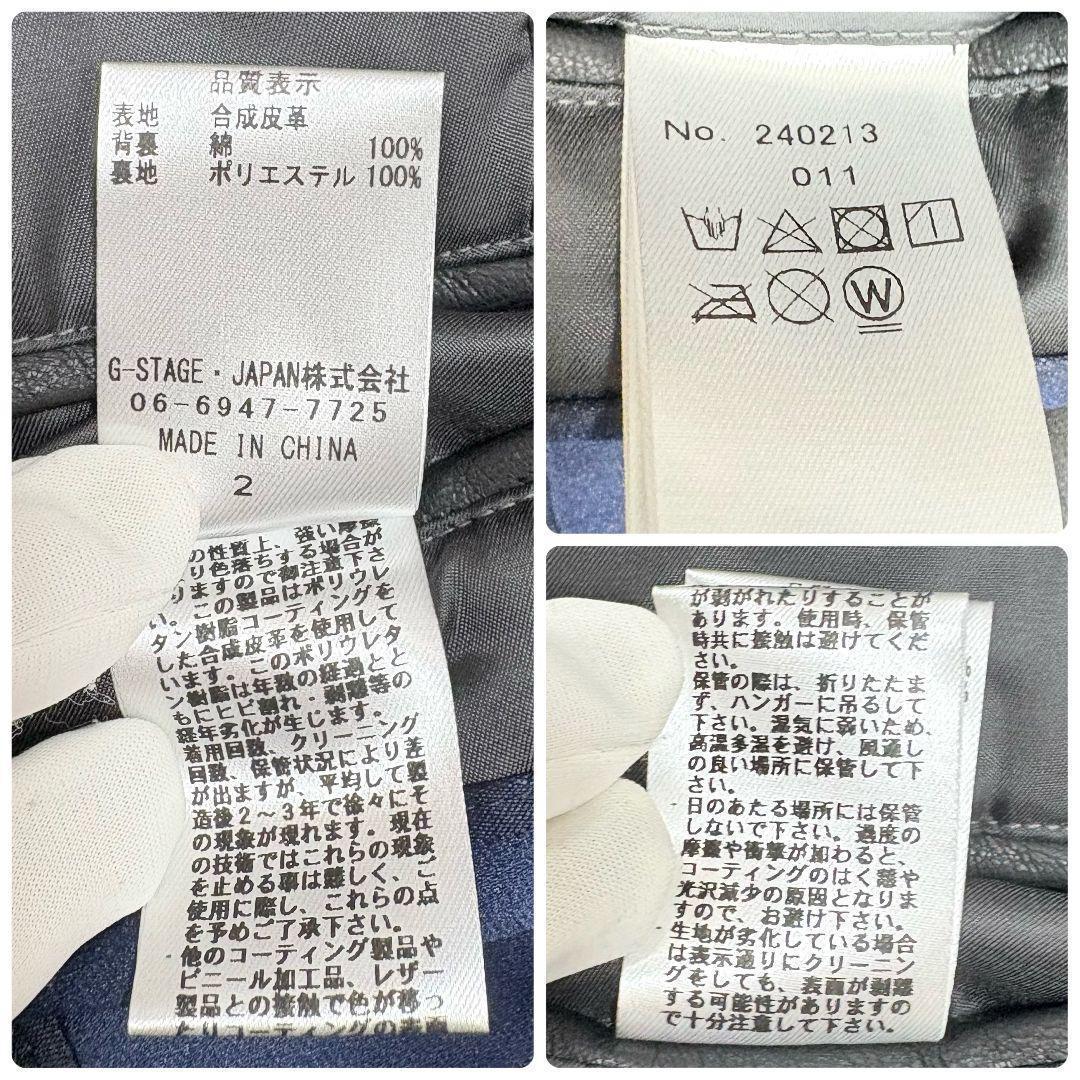 品質表示
表地 合成皮革
背裏 綿 100%
裏地 ポリエステル 100%
G-STAGE・JAPAN株式会社
06-6947-7725
MADE IN CHINA
2
の性質上、強い摩擦
り色落ちする場合が
りますので御注意下さ
い。この製品はポリウレ
タン樹脂コーティングを
した合成皮革を使用して
います。このポリウレタ
ン樹脂は年数の経過とと
もにヒビ割れ・剥離等の
経年劣化が生じます。
着用回数、クリーニング
回数、保管状況により差
が出ますが、平均して製
造後2～3年で徐々にそ
の現象が現れます。現在
の技術ではこれらの現象
を止める事は難しく、ご
使用に際し、これらの点
を予めご了承下さい。
他のコーティング製品や
ビニール加工品、レザー
製品との接触で色が移っ
たりコーティングの表面
No. 240213
011
W
が剥がれたりすることが
あります。使用時、保管
時共に接触は避けてくだ
さい。
保管の際は、折りたたま
ず、ハンガーに吊るして
下さい。湿気に弱いため、
高温多湿を避け、風通し
の良い場所に保管して下
さい。
日のあたる場所には保管
しないで下さい。過度の
摩擦や衝撃が加わると、
コーティングのはく離や
光沢減少の原因となりま
すので、お避け下さい。
生地が劣化している場合
は表示通りにクリーニン
グをしても、表面が剥離
する可能性がありますの
で十分注意して下さい。